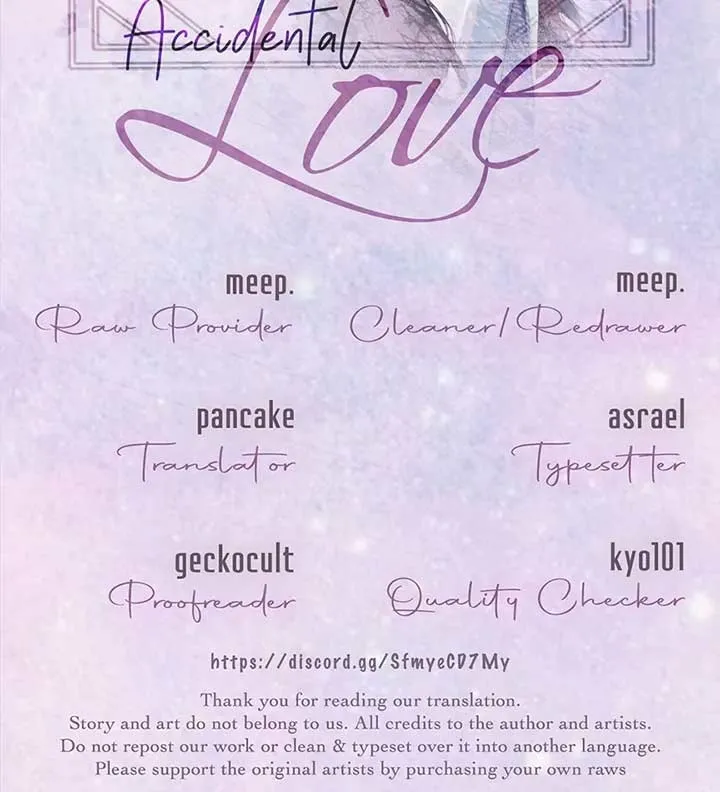 Accidental
Love
meep.
Raw Provider
meep.
Cleaner/Redrawer
pancake
Translator
asrael
Typesetter
geckocult
Proofreader
kyo101
Quality Checker
https://discord.gg/SfmyeCD7My
Thank you for reading our translation.
Story and art do not belong to us. All credits to the author and artists.
Do not repost our work or clean & typeset over it into another language.
Please support the original artists by purchasing your own raws